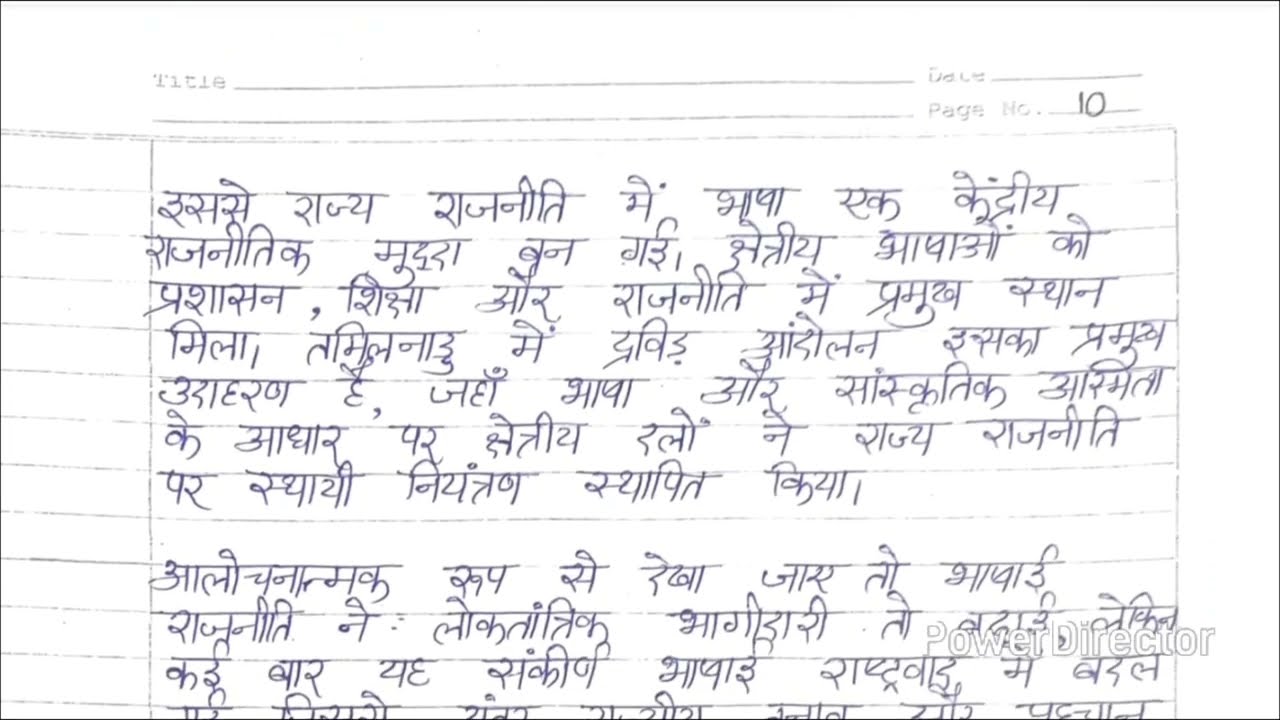 Title
Date
Page No. 10
इससे राज्य राजनीति में भाषा एक केंद्रीय
राजनीतिक मुद्दा बन गई। क्षेत्रीय भाषाओं को
प्रशासन, शिक्षा और राजनीति में प्रमुख स्थान
मिला। तमिलनाडु में द्रविड़ आंदोलन इसका प्रमुख
उदाहरण है, जहाँ भाषा और सांस्कृतिक अस्मिता
के आधार पर क्षेत्रीय दलों ने राज्य राजनीति
पर स्थायी नियंत्रण स्थापित किया।
आलोचनात्मक रूप से देखा जाए तो भाषाई
राजनीति ने लोकतांत्रिक भागीदारी तो बढ़ाई, लेकिन
PowerDirector
कई बार यह संकीर्ण भाषाई राष्ट्रवाद में बदल